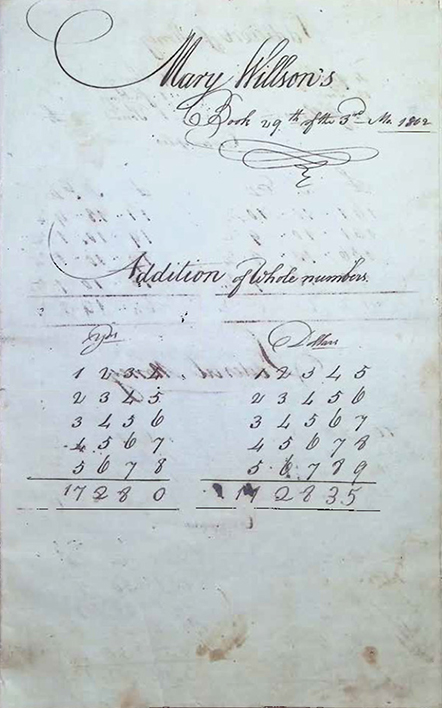 Mary Willson's
Book 29th of the 3rd Mo. 1802
Addition of Whole numbers.
Yds Dollars
1 2 3 4 1 2 3 4 5
2 3 4 5 2 3 4 5 6
3 4 5 6 3 4 5 6 7
4 5 6 7 4 5 6 7 8
5 6 7 8 5 6 7 8 9
17 2 8 0 17 2 8 3 5